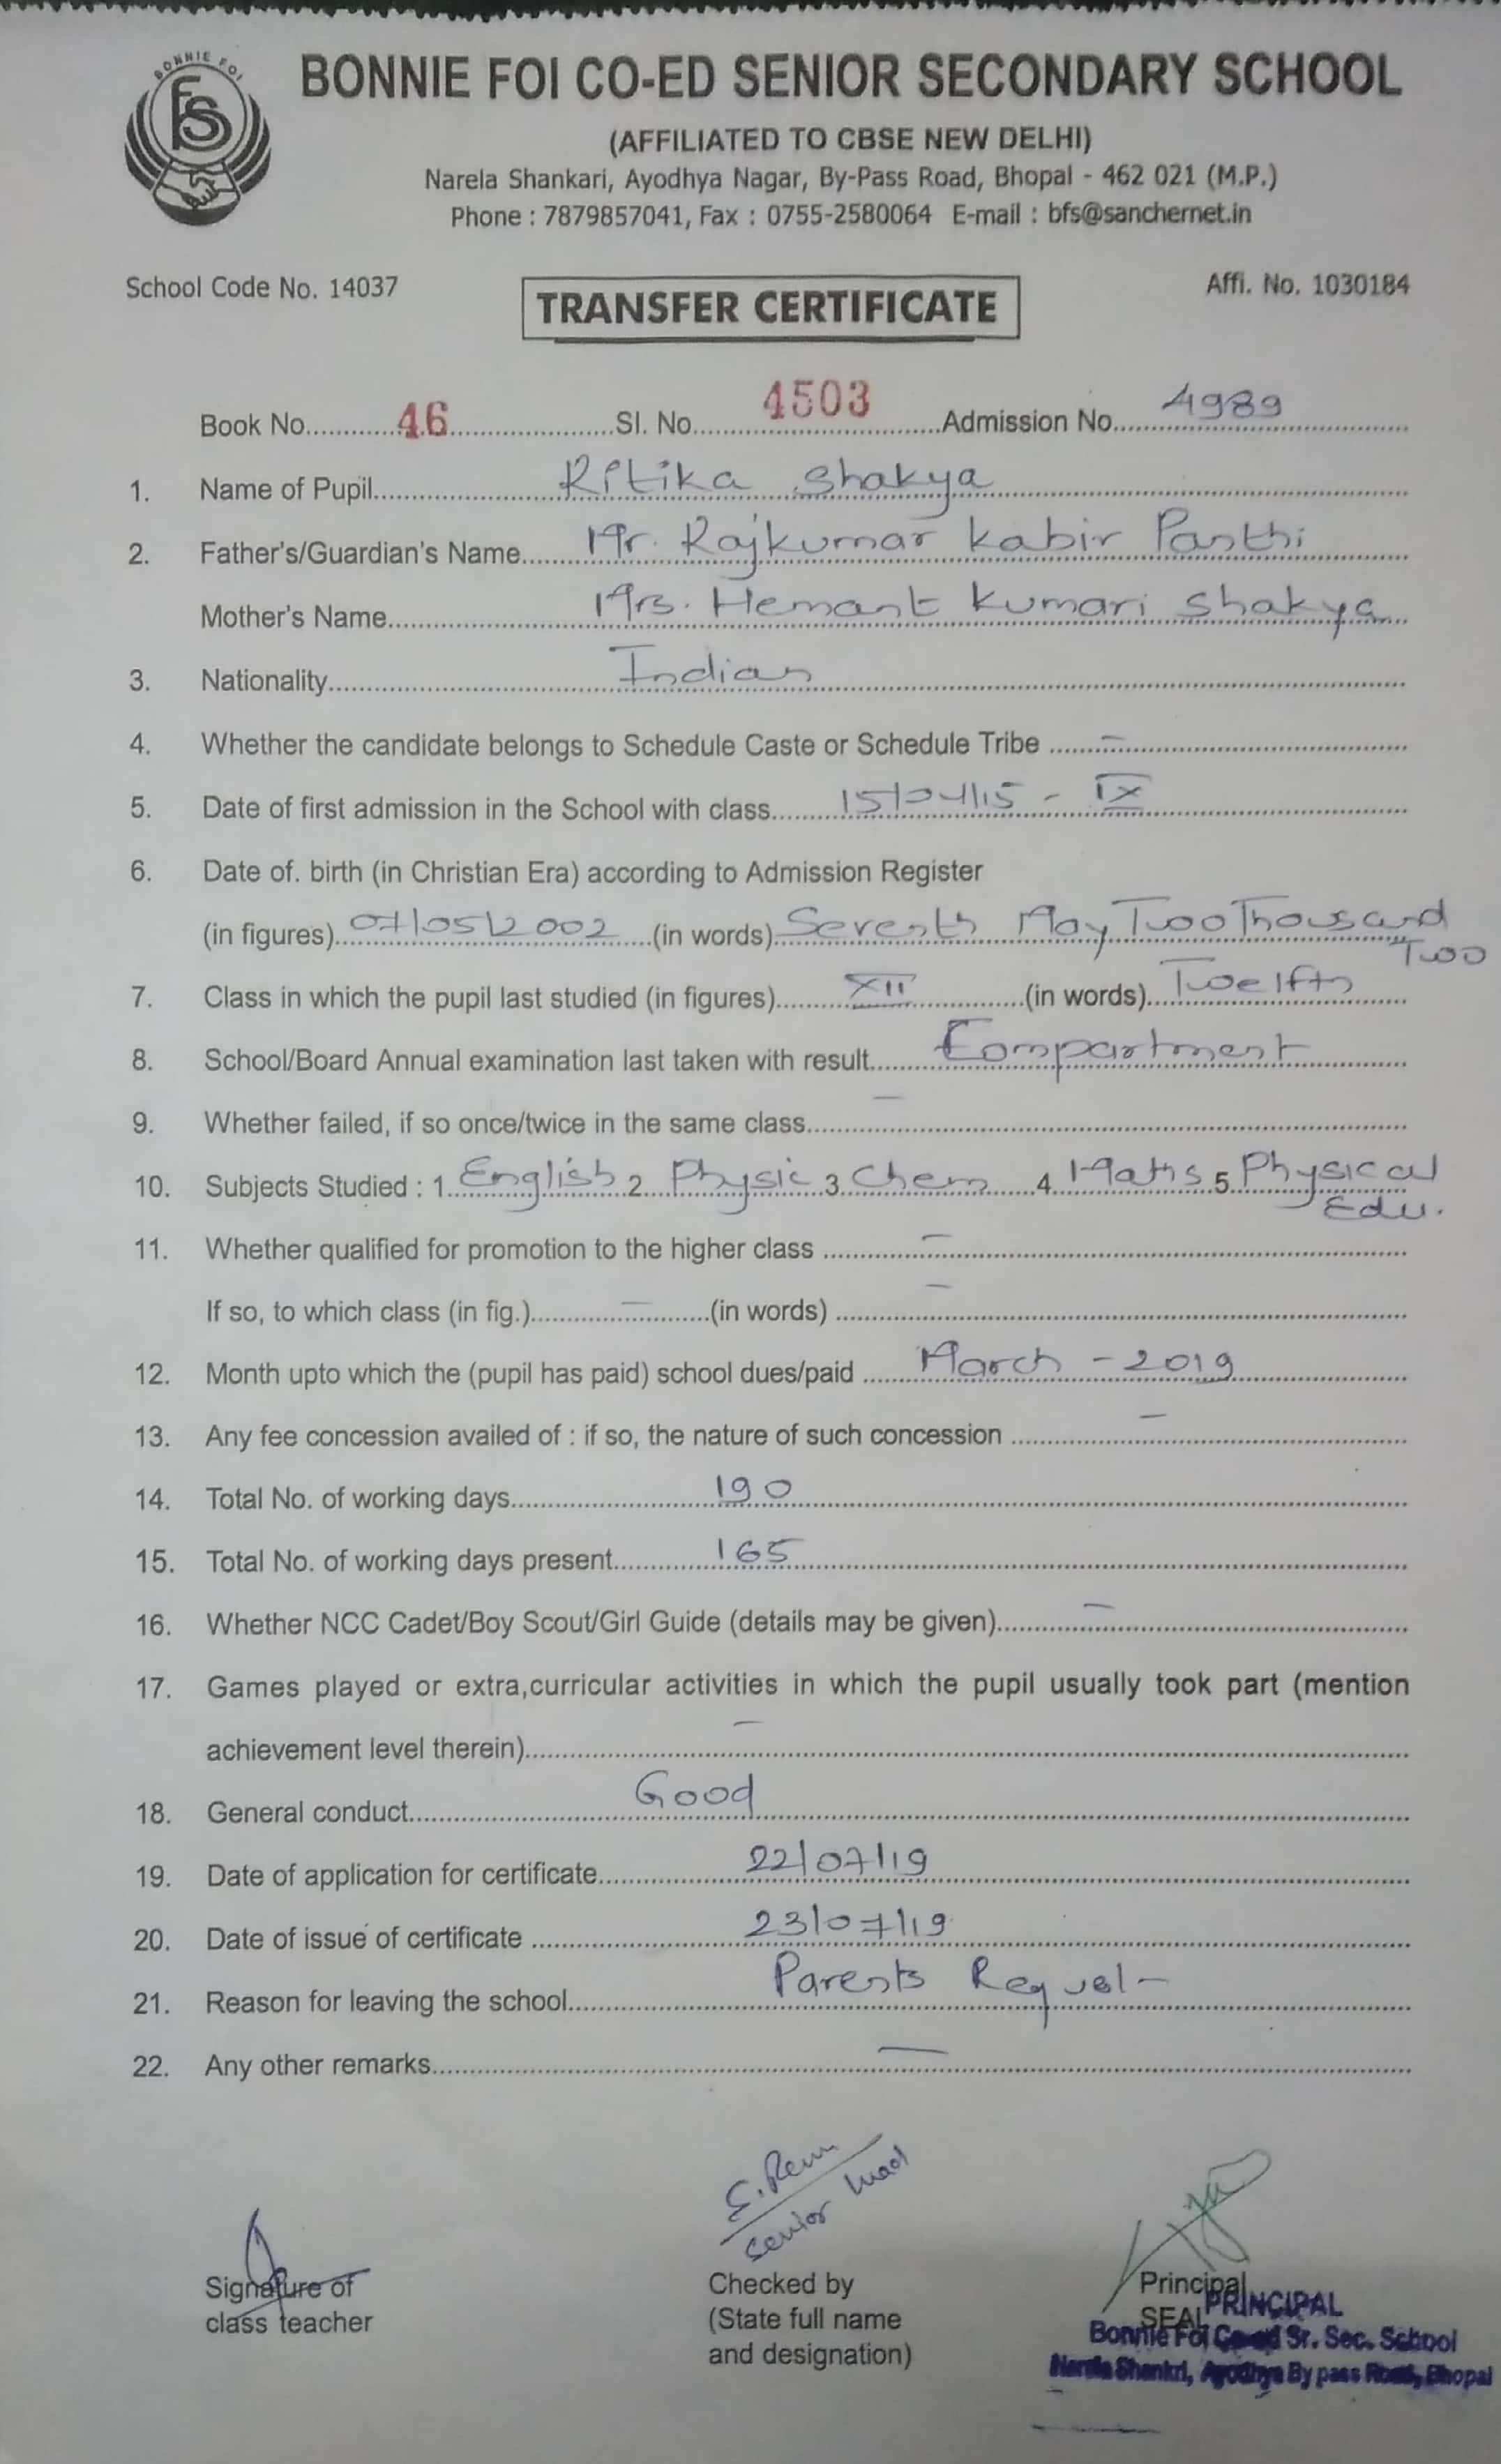 BONNIE FOI
BFS
BONNIE FOI CO-ED SENIOR SECONDARY SCHOOL
(AFFILIATED TO CBSE NEW DELHI)
Narela Shankari, Ayodhya Nagar, By-Pass Road, Bhopal - 462 021 (M.P.)
Phone : 7879857041, Fax : 0755-2580064 E-mail : bfs@sanchernet.in
School Code No. 14037 Affi. No. 1030184
TRANSFER CERTIFICATE
Book No. 46 Sl. No. 4503 Admission No. 4989
1. Name of Pupil Ritika Shakya
2. Father's/Guardian's Name Mr. Rajkumar Kabir Panthi
Mother's Name Mrs. Hemant Kumari Shakya
3. Nationality Indian
4. Whether the candidate belongs to Schedule Caste or Schedule Tribe –
5. Date of first admission in the School with class 15/04/15 - IX
6. Date of. birth (in Christian Era) according to Admission Register
(in figures) 07/05/2002 (in words) Seventh May Two Thousand
Two
7. Class in which the pupil last studied (in figures) XII (in words) Twelfth
8. School/Board Annual examination last taken with result Compartment
9. Whether failed, if so once/twice in the same class –
10. Subjects Studied : 1. English 2. Physic 3. Chem 4. Maths 5. Physical
Edu.
11. Whether qualified for promotion to the higher class –
If so, to which class (in fig.) – (in words) –
12. Month upto which the (pupil has paid) school dues/paid March - 2019
13. Any fee concession availed of : if so, the nature of such concession –
14. Total No. of working days 190
15. Total No. of working days present 165
16. Whether NCC Cadet/Boy Scout/Girl Guide (details may be given) –
17. Games played or extra,curricular activities in which the pupil usually took part (mention
achievement level therein) –
18. General conduct Good
19. Date of application for certificate 22/07/19
20. Date of issue of certificate 23/07/19
21. Reason for leaving the school Parents
22. Any other remarks –
Senior
Signature of
class teacher
Checked by
(State full name
and designation)
Principal
SEAL
PRINCIPAL
Bonnie Foi Co-ed Sr. Sec. School
Narela Shankri, Ayodhya By pass Road, Bhopal